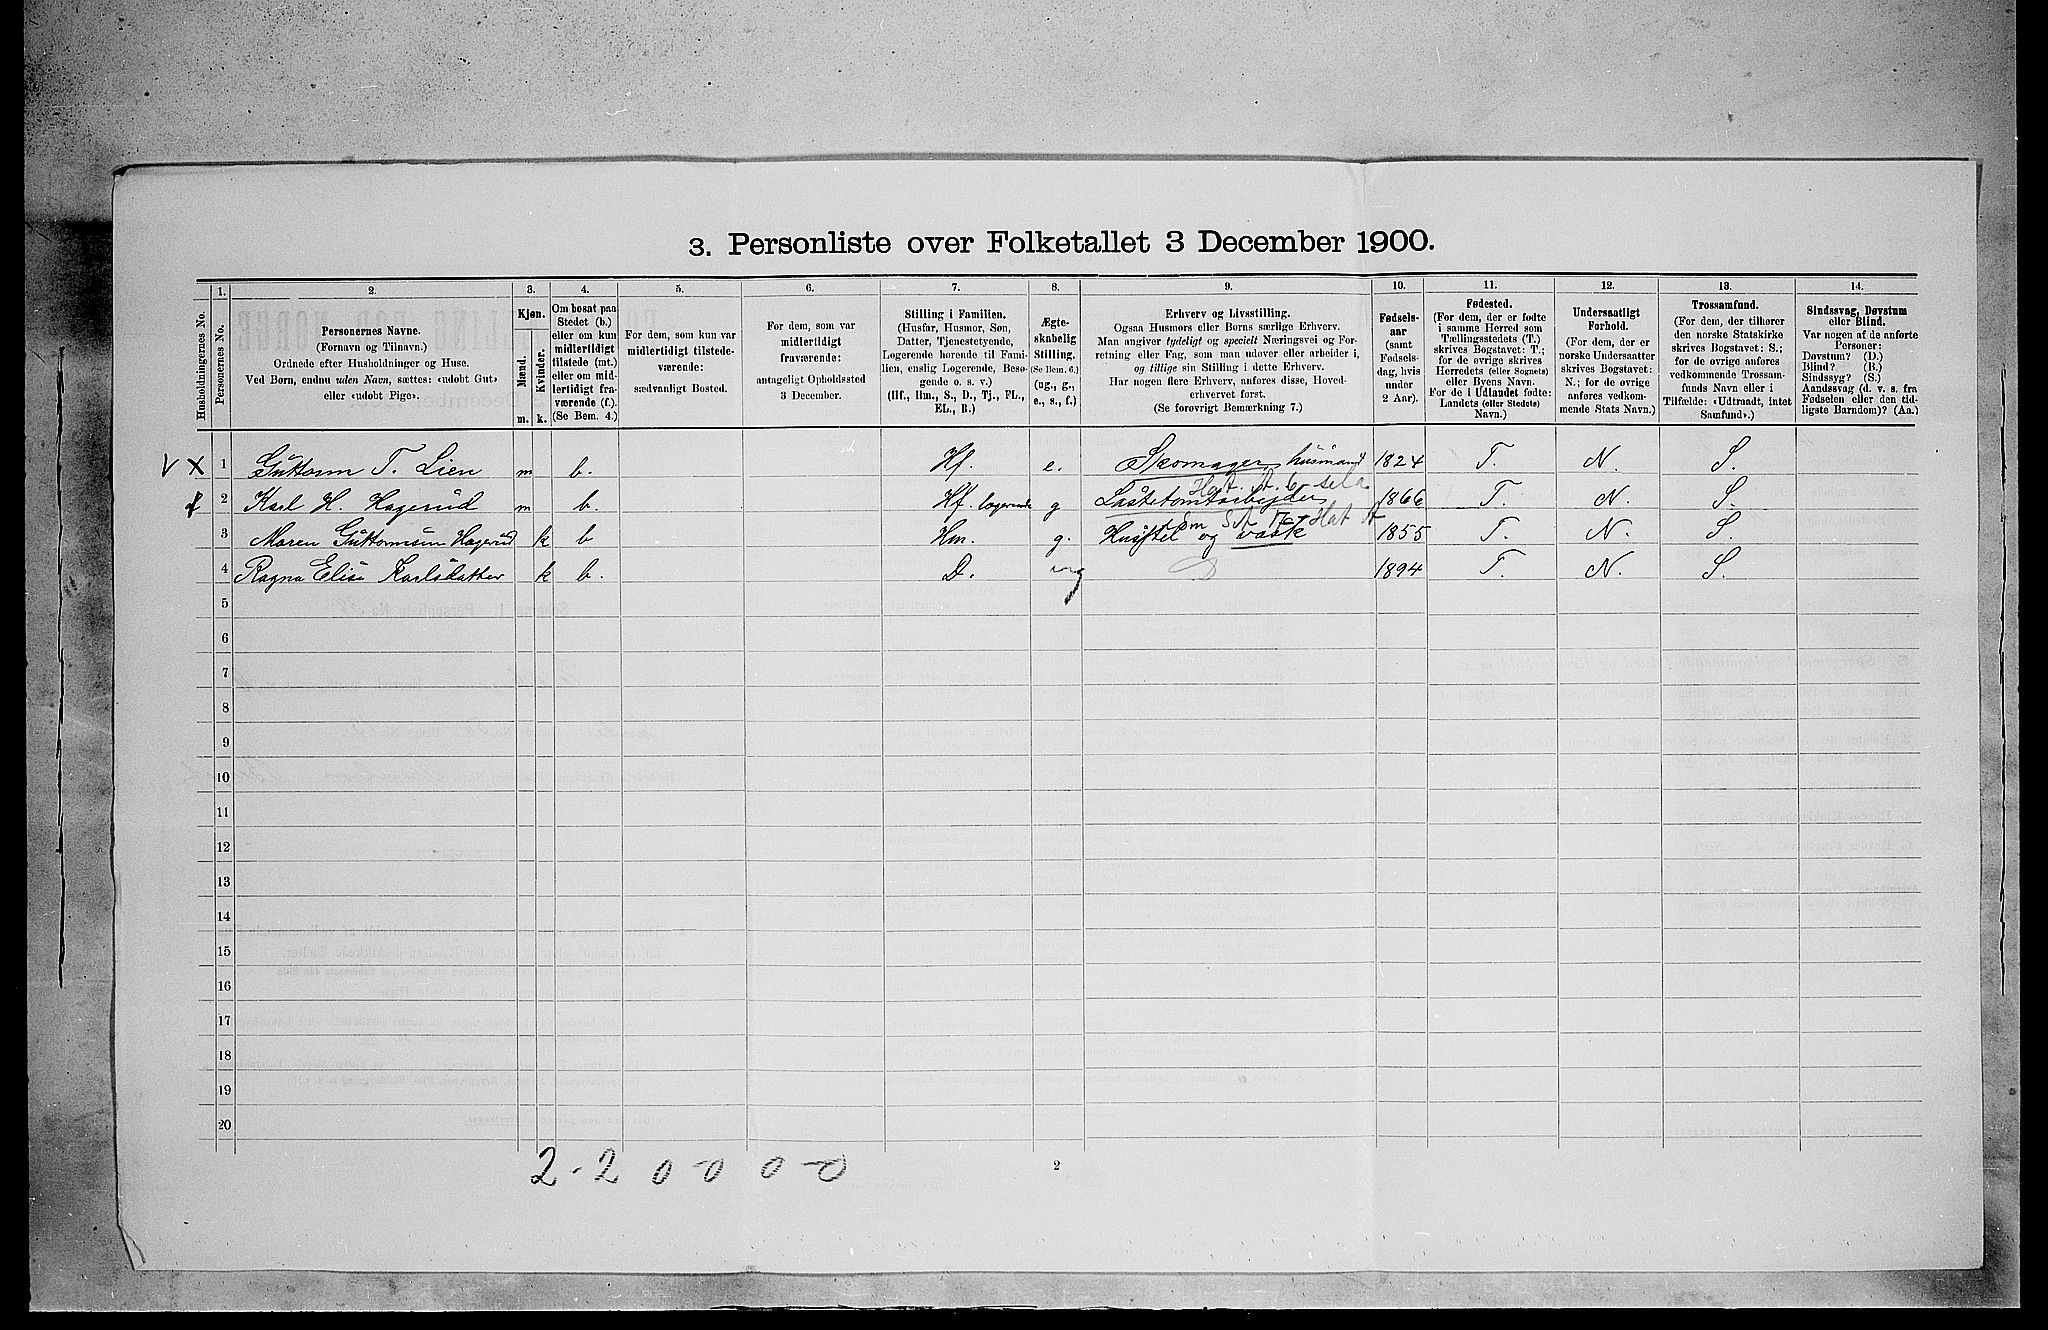 3. Personliste over Folketallet 3 December 1900.
Husholdningernes No.
1.
Personernes No.
2.
Personernes Navne.
(Fornavn og Tilnavn.)
Ordnede efter Husholdninger og Huse.
Ved Børn, endnu uden Navn, sættes: «udobt Gut»
eller «udobt Pige».
3.
Kjøn.
Mænd.
Kvinder.
m. k.
4.
Om bosat paa
Stedet (b.)
eller om kun
midlertidigt
tilstede (mt.)
eller om mid-
lertidigt fra-
værende (f.).
(Se Bem. 4.)
5.
For dem, som kun var
midlertidigt tilstede-
værende:
sædvanligt Bosted.
6.
For dem, som var
midlertidigt
fraværende:
antageligt Opholdssted
3 December.
7.
Stilling i Familien.
(Husfar, Husmor, Søn,
Datter, Tjenestetyende,
Logerende hørende til Fami-
lien, enslig Logerende, Besø-
gende o. s. v.)
(Hf., Hm., S., D., Tj., FL.,
EL., B.)
8.
Ægte-
skabelig
Stilling.
(Se Bem. 6.)
(ug., g.,
e., s., f.)
9.
Erhverv og Livsstilling.
Ogsaa Husmors eller Børns særlige Erhverv.
Man angiver tydeligt og specielt Næringsvei og For-
retning eller Fag, som man udøver eller arbeider i,
og tillige sin Stilling i dette Erhverv.
Har nogen flere Erhverv, anføres disse, Hoved-
erhvervet først.
(Se forøvrigt Bemærkning 7.)
10.
Fødsels-
aar
(samt
Fødsels-
dag, hvis
under
2 Aar).
11.
Fødested.
(For dem, der er fødte
i samme Herred som
Tællingsstedets (T.)
skrives Bogstavet: T.;
for de øvrige skrives
Herredets (eller Sognets)
eller Byens Navn.
For de i Udlandet fødte:
Landets (eller Stedets)
Navn.)
12.
Undersaatligt
Forhold.
(For dem, der er
norske Undersaatter
skrives Bogstavet:
N.; for de øvrige
anføres vedkom-
mende Stats Navn.)
13.
Trossamfund.
(For dem, der tilhører
den norske Statskirke
skrives Bogstavet: S.;
for de øvrige anføres
vedkommende Trossam-
funds Navn eller i
Tilfælde: «Udtraadt, intet
Samfund».)
14.
Sindssvag, Døvstum
eller Blind.
Var nogen af de anførte
Personer:
Døvstum? (D.)
Blind? (B.)
Sindssyg? (S.)
Aandssvag (d. v. s. fra
Fødselen eller den tid-
ligste Barndom)? (Aa.)
V X 1 Guttorm T. Lien m b. Hf. e. Skomager, husmand 1824 T. N. S.
2 Karl H. Hagerud m b. Hf. logerende g 1866 T. N. S.
3 Maren Guttormsen Hagerud k b Hm. g. Husstel og vask 1855 T. N. S.
4 Ragna Elise Karlsdatter k b. D. ug D 1894 T. N. S.
5
6
7
8
9
10
11
12
13
14
15
16
17
18
19
20
2 - 2 0 - 0 0 - 0
2